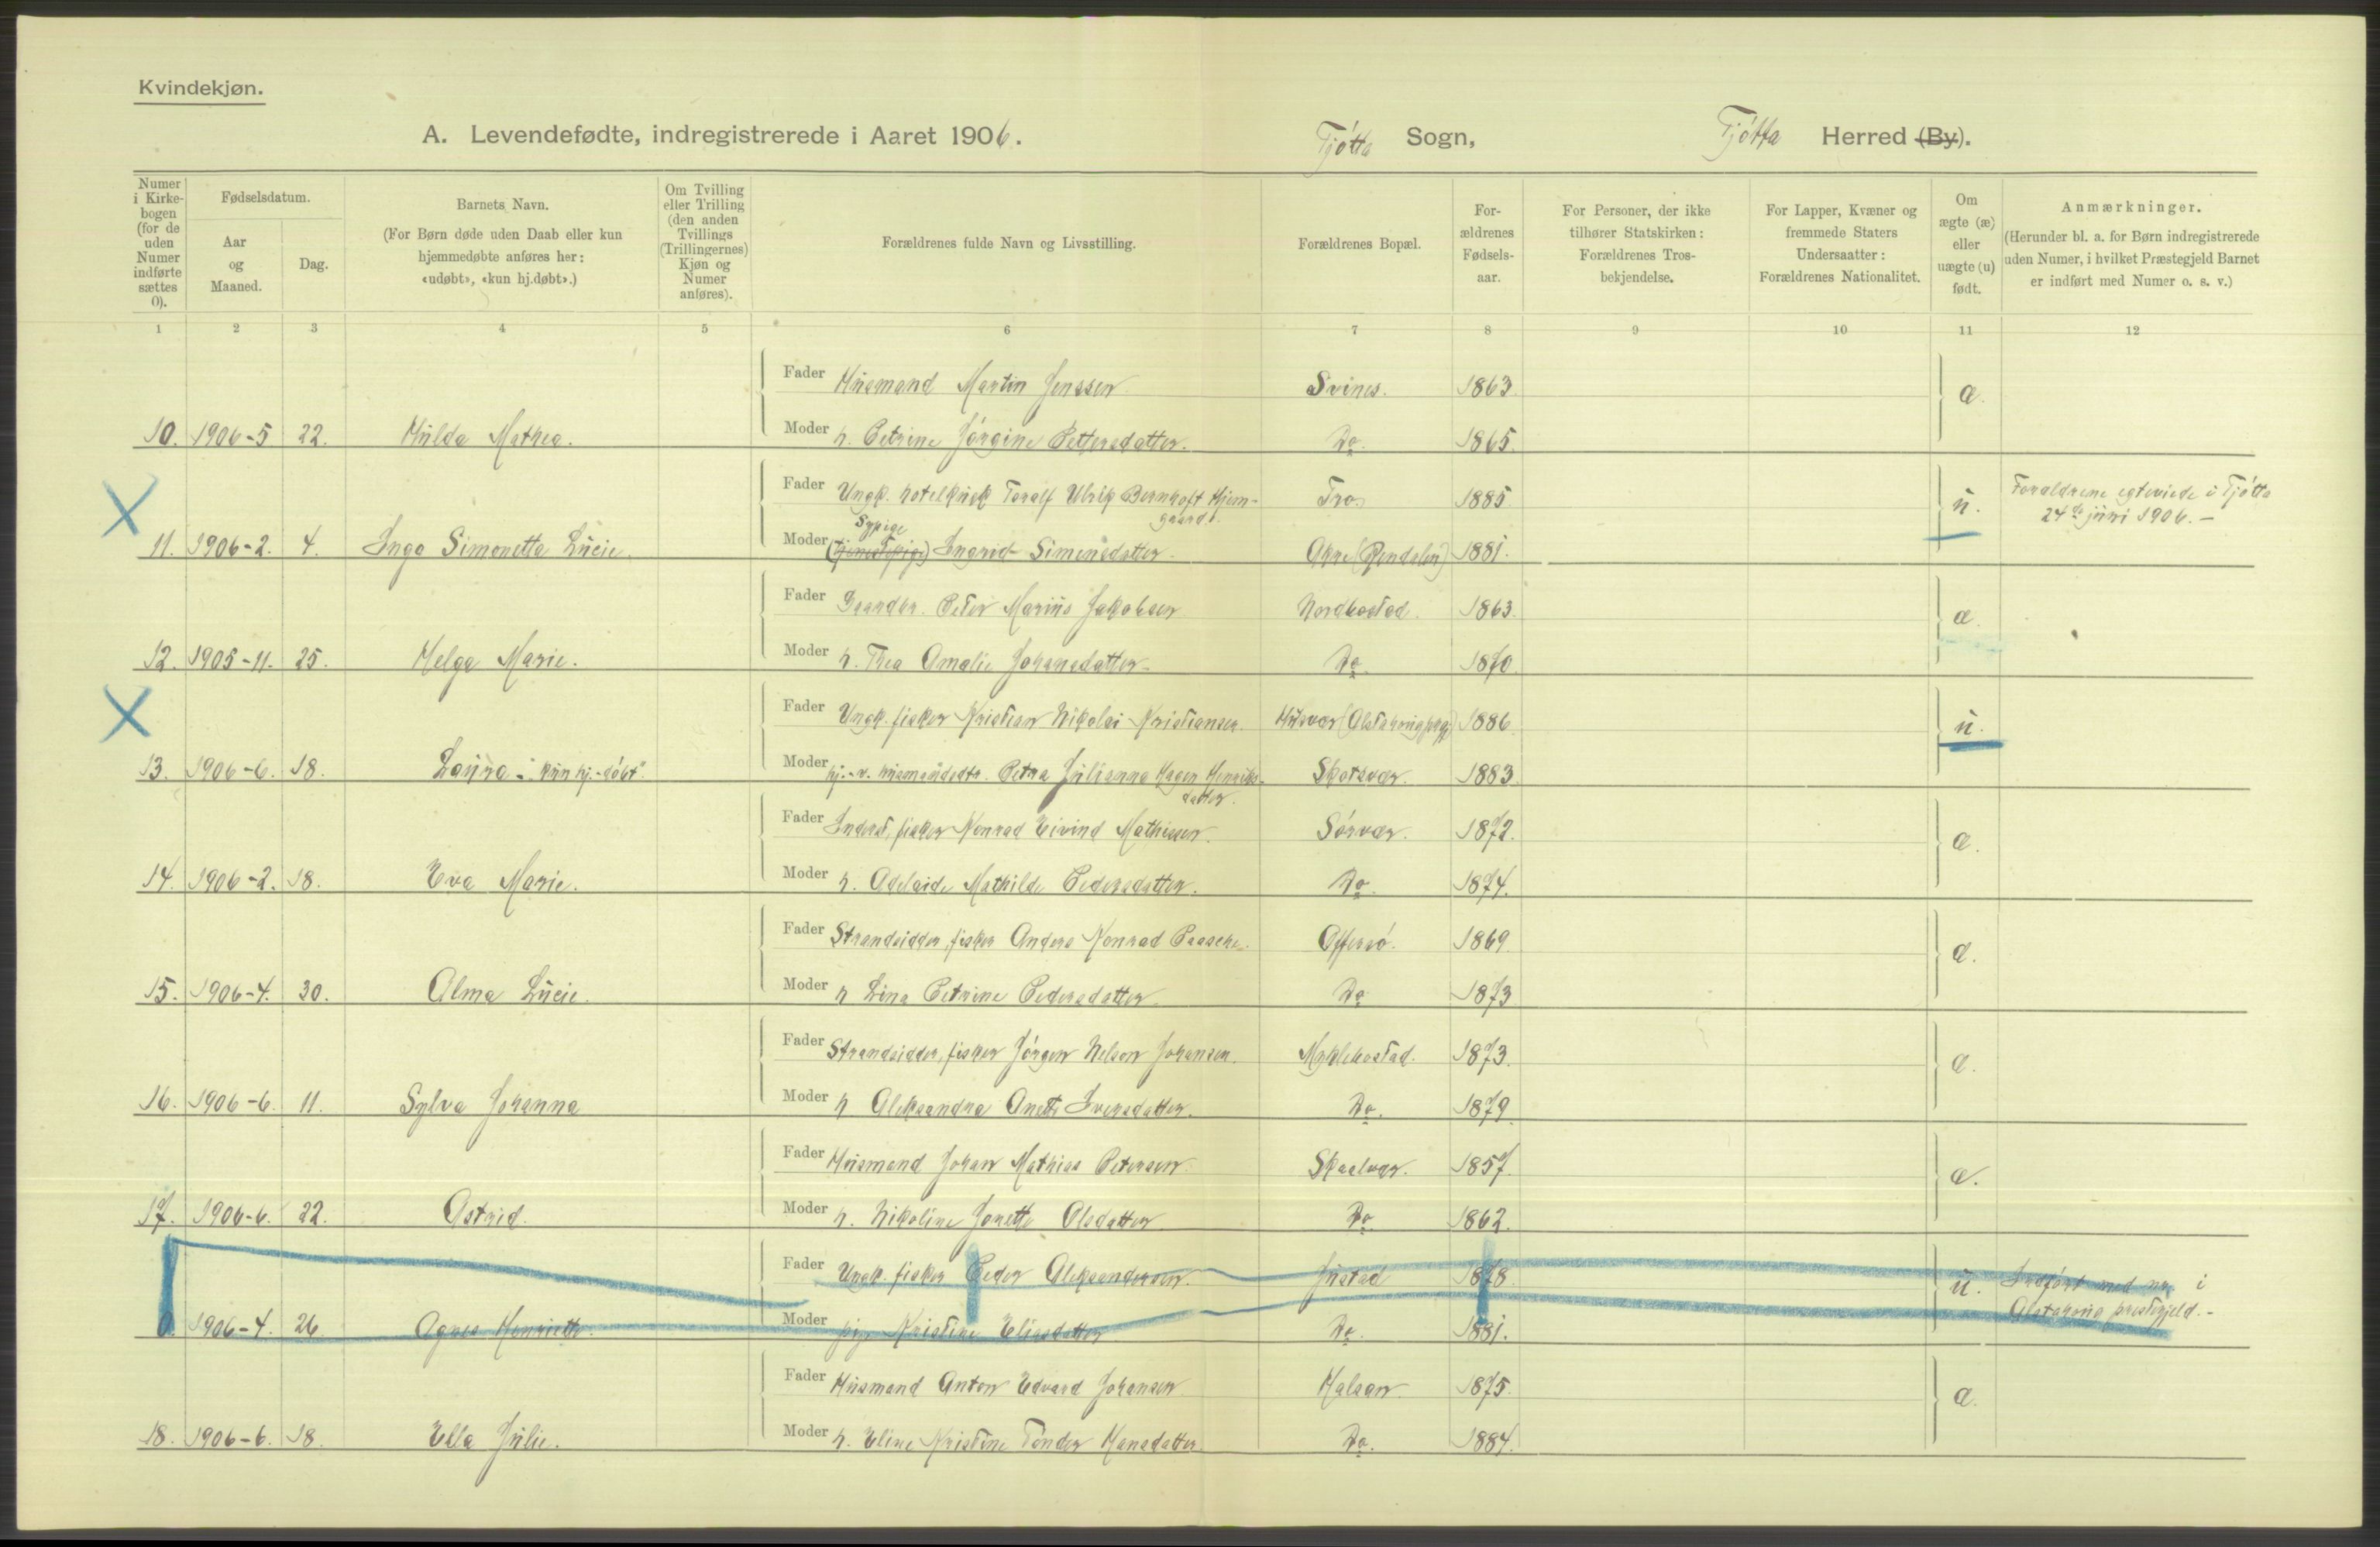 Kvindekjøn.
A. Levendefødte, indregistrerede i Aaret 1906.
Tjøtta Sogn, Tjøtta Herred (By).
Numer i Kirkebogen (for de uden Numer indførte sættes 0).
Fødselsdatum.
Aar og Maaned.
Dag.
Barnets Navn.
(For Børn døde uden Daab eller kun hjemmedøbte anføres her: «udøbt», «kun hj.døbt».)
Om Tvilling eller Trilling (den anden Tvillings (Trillingernes) Kjøn og Numer anføres).
Forældrenes fulde Navn og Livsstilling.
Forældrenes Bopæl.
Forældrenes Fødselsaar.
For Personer, der ikke tilhører Statskirken: Forældrenes Trosbekjendelse.
For Lapper, Kvæner og fremmede Staters Undersaatter: Forældrenes Nationalitet.
Om ægte (æ) eller uægte (u) født.
Anmærkninger.
(Herunder bl. a. for Børn indregistrerede uden Numer, i hvilket Præstegjeld Barnet er indført med Numer o. s. v.)
1 2 3 4 5 6 7 8 9 10 11 12
Fader Husmand Martin Jenssen Svines. 1863. æ.
10. 1906-5 22. Hulda Mathea. Moder h. Petrine Jørgine Pettersdatter. Do. 1865.
Fader Ungk. hotelkusk Toralf Ulrik Bernhoft Hjem- Tro. 1885. u. Forældrene egteviede i Tjøtta
gaard. 24de juni 1906. -
Sypige
11. 1906-2. 4. Inga Simonetta Lucie. Moder (tjenestepige) Ingrid Simensdatter. Akre (Rendalen) 1881.
Fader Gaardbr. Peter Marius Jakobsen Nordbostad. 1863. æ.
12. 1905-11. 25. Helga Marie. Moder h. Thea Amalie Johansdatter. Do. 1870.
Fader Ungk. fisker Kristian Nikolai Kristiansen. Husvær (Alstahaug prgj) 1886. u.
13. 1906-6. 18. Laura - "kun hj.-døbt". Moder hj.-v. husmandsdtr. Petra Julianna Hagen Henriks-
datter. Skotsvær. 1883.
Fader Inderst, fisker Konrad Eivind Mathissen. Sørvær. 1872. æ.
14. 1906-2. 18. Eva Marie. Moder h. Adelaide Mathilde Pedersdatter. Do. 1874.
Fader Strandsidder, fisker Anders Konrad Paasche. Offersø. 1869. æ.
15. 1906-4. 30. Alma Lucie. Moder h Lina Petrine Pedersdatter. Do 1873
Fader Strandsidder, fisker Jørgen Nelson Johansen. Myklebostad. 1873. æ.
16. 1906-6. 11. Sylva Johanna Moder h Aleksandra Anette Iversdatter. Do. 1879.
Fader Husmand Johan Mathias Petersen. Skaalvær. 1857. æ.
17. 1906-6. 22. Astrid. Moder h. Nikoline Jonette Olsdatter Do 1862.
Fader Ungk. fisker Peder Aleksandersen. Justad 1878. u. Indført med no. i
0. 1906-4. 26 Agnes Henriette. Moder pige Kristine Eliasdatter Do. 1881. Alstahaug prestegjeld. -
Fader Husmand Anton Edvard Johansen Halsan 1875. æ.
18. 1906-6. 18. Ella Julie. Moder h. Eline Kristine Tønder Hansdatter. Do. 1884.